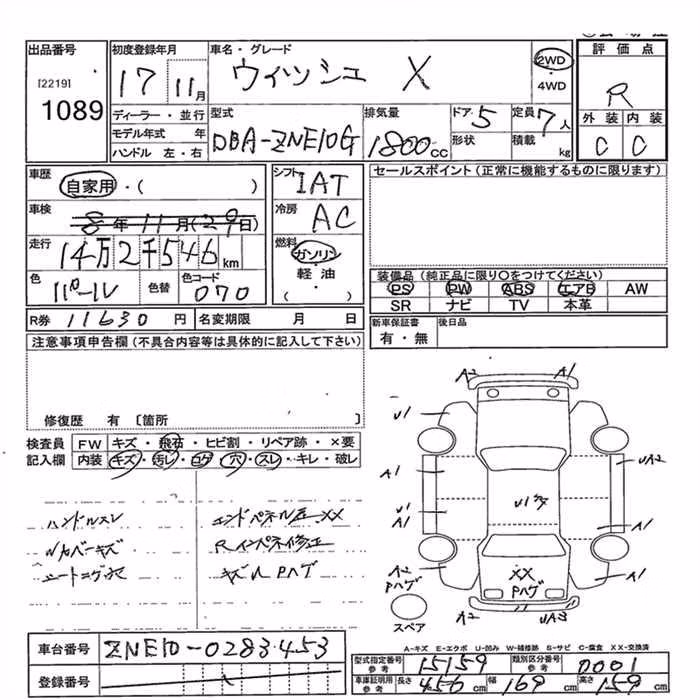 出品番号
[2219]
1089
初度登録年月
17 11月
ディーラー・並行
モデル年式 年
ハンドル 左・右
車名・グレード
ウィッシュ X
2WD
4WD
型式
DBA-ZNE10G
排気量
1800cc
ドア 5
形状
定員 7人
積載 kg
評価点
R
外装 内装
C C
車歴
自家用・( )
車検
8年11月(29日)
走行
14万2千546km
色
パール
色替
色コード
070
シフト
IAT
冷房
AC
燃料
ガソリン
軽油
( )
セールスポイント(正常に機能するものに限ります)
装備品(純正品に限り○をつけてください)
PS PW ABS エアB AW
SR ナビ TV 本革
新車保証書
有・無
後日品
R券 11630円
名変期限 月 日
注意事項申告欄(不具合内容等は具体的に記入して下さい)
修復歴 有 [箇所 ]
検査員
記入欄
FW キズ・飛石・ヒビ割・リペア跡・×要
内装 キズ・汚レ・コゲ・穴・スレ・キレ・破レ
ハンドルスレ
エンドパネル XX
Rインパネ修正
キズ Pハゲ
A2 A1
U1 A1
A1 UA2
U1
A1 A1
U1多
A2
Pハゲ
XX
Pハゲ
A1
A2 UA3
スペア
A-キズ E-エクボ U-凹み W-補修跡 S-サビ C-腐食 XX-交換済
車台番号 ZNE10-0283453
登録番号
型式指定番号
参考
15159
類別区分番号
参考
0001
車庫証明用
参考
長さ 456cm 幅 169cm 高さ 159cm